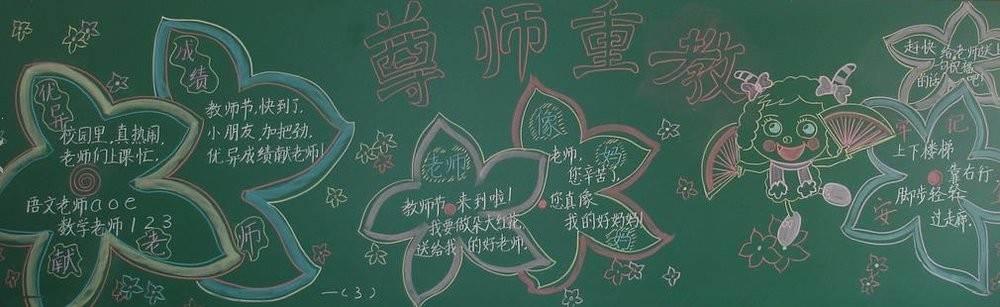 尊师重教
优异
校园里,真热闹,
老师们上课忙.
语文老师aoe
数学老师123
献
老
师
成绩
教师节,快到了,
小朋友,加把劲,
优异成绩献老师!
一(3)
老师
教师节 来到啦!
我要做朵大红花,
送给我的好老师.
像
妈
老师,
您辛苦了,
您真像
我的好妈妈!
妈
赶快给老师送
句祝福
的话吧!
牢记
上下楼梯
靠右行
脚步轻轻
过走廊.
安